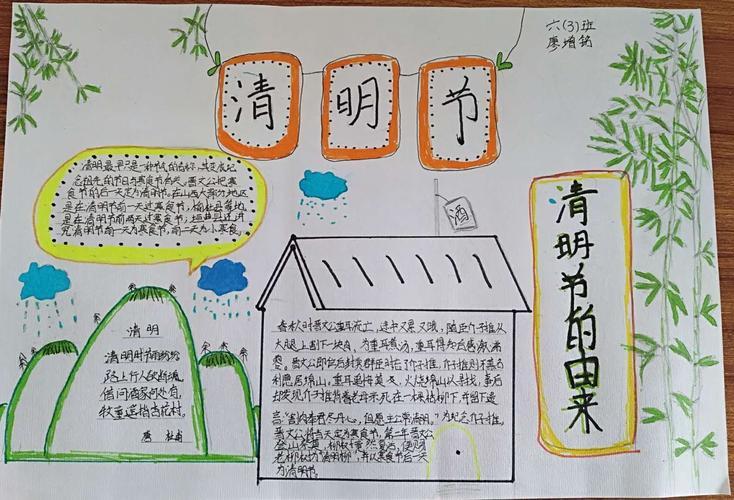 六(3)班
廖增铭
清明节
清明最早只是一种节气的名称,其变成纪
念祖先的节日与寒食节有关。晋文公把寒
食节的后一天定为清明节。在山西大部分地区
是在清明节前一天过寒食节,榆社县等地
是在清明节前两天过寒食节,垣曲县还讲
究清明节前一天为寒食节,前二天为小寒食。
酒
清明节的由来
清明
清明时节雨纷纷
路上行人欲断魂
借问酒家何处有
牧童遥指杏花村。
唐 杜甫
春秋时晋文公重耳流亡,途中又累又饿,随臣介子推从
大腿上割下一块肉,为重耳煮汤,重耳得知后感激涕
零。晋文公即位后封赏群臣时忘了介子推,介子推则不慕名
利隐居绵山,重耳追悔莫及,火烧绵山以寻找,事后
却发现介子推背着老母亲死在一棵枯柳下,并留下遗
言:"割肉奉君尽丹心,但愿主公常清明。"为纪念介子推,
晋文公将当天定为寒食节,第二年晋文公
登山祭奠,柳树死而复活,便赐
老柳树为"清明柳",并以寒食节后一天
为清明节。